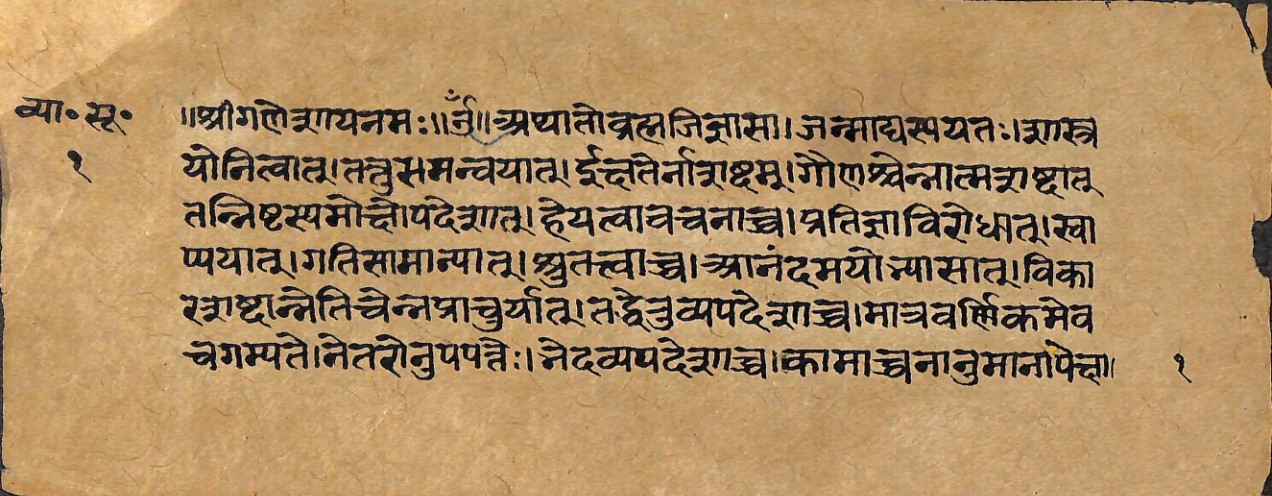 व्या॰ सू॰ ॥श्रीगणेशायनमः॥ॐ॥अथातोब्रह्मजिज्ञासा।जन्माद्यस्ययतः।शास्त्र
१ योनित्वात्।तत्तुसमन्वयात्।ईक्षतेर्नाशब्दम्।गौणश्चेन्नात्मशब्दात्
तन्निष्टस्यमोक्षोपदेशात्।हेयत्वावचनाच्च।प्रतिज्ञाविरोधात्।स्वा
प्ययात्।गतिसामान्यात्।श्रुतत्त्वाच्च।आनंदमयोभ्यासात्।विका
रशब्दान्नेतिचेन्नप्राचुर्यात्।तद्धेतुव्यपदेशाच्च।मात्रवर्णिकमेव
चगम्यते।नेतरोनुपपत्तेः।भेदव्यपदेशाच्च।कामाच्चनानुमानापेक्षा। १